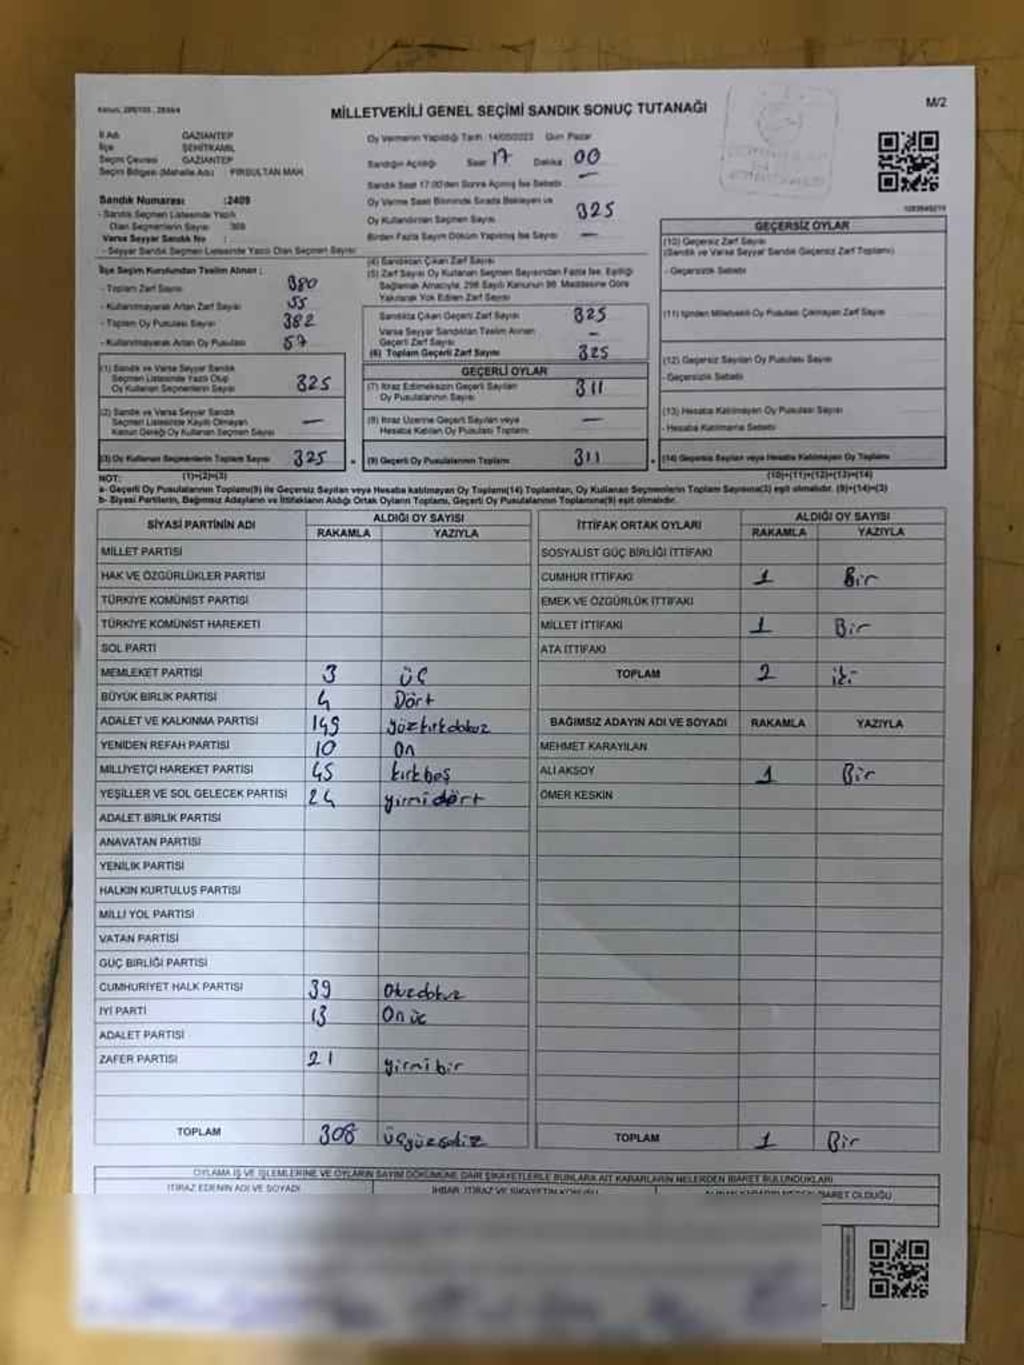 MİLLETVEKİLİ GENEL SEÇİMİ SANDIK SONUÇ TUTANAĞI
M/2
İl Adı GAZİANTEP
İlçe ŞEHİTKAMİL
Seçim Çevresi GAZİANTEP
Seçim Bölgesi (Mahalle Adı) PIRSULTAN MAH
Oy Vermenin Yapıldığı Tarih 14/05/2023 Gün Pazar
Sandığın Açıldığı Saat 17 Dakika 00
Sandık Saat 17:00'den Sonra Açılmış İse Sebebi —
Sandık Numarası :2409
- Sandık Seçmen Listesinde Yazılı
Olan Seçmenlerin Sayısı
Varsa Seyyar Sandık No :
- Seyyar Sandık Seçmen Listesinde Yazılı Olan Seçmen Sayısı
Oy Verme Saati Bitiminde Sırada Bekleyen ve
Oy Kullandırılan Seçmen Sayısı 325
Birden Fazla Sayım Döküm Yapılmış İse Sayısı —
İlçe Seçim Kurulundan Teslim Alınan :
- Toplam Zarf Sayısı 380
- Kullanılmayarak Artan Zarf Sayısı 55
- Toplam Oy Pusulası Sayısı 382
- Kullanılmayarak Artan Oy Pusulası 57
(1) Sandık ve Varsa Seyyar Sandık
Seçmen Listesinde Yazılı Olup
Oy Kullanan Seçmenlerin Sayısı 325
(2) Sandık ve Varsa Seyyar Sandık
Seçmen Listesinde Kayıtlı Olmayan
Kanun Gereği Oy Kullanan Seçmen Sayısı —
(3) Oy Kullanan Seçmenlerin Toplam Sayısı 325
(1)+(2)=(3)
(4) Sandıktan Çıkan Zarf Sayısı
(5) Zarf Sayısı Oy Kullanan Seçmen Sayısından Fazla İse, Eşitliği
Sağlamak Amacıyla, 298 Sayılı Kanunun 98. Maddesine Göre
Yakılarak Yok Edilen Zarf Sayısı —
Sandıkta Çıkan Geçerli Zarf Sayısı 325
Varsa Seyyar Sandıktan Teslim Alınan
Geçerli Zarf Sayısı —
(6) Toplam Geçerli Zarf Sayısı 325
GEÇERLİ OYLAR
(7) İtiraz Edilmeksizin Geçerli Sayılan
Oy Pusulalarının Sayısı 311
(8) İtiraz Üzerine Geçerli Sayılan veya
Hesaba Katılan Oy Pusulası Toplamı —
(9) Geçerli Oy Pusulalarının Toplamı 311
GEÇERSİZ OYLAR
(10) Geçersiz Zarf Sayısı
(Sandık ve Varsa Seyyar Sandık Geçersiz Zarf Toplamı)
- Geçersizlik Sebebi
(11) İçinden Milletvekili Oy Pusulası Çıkmayan Zarf Sayısı
(12) Geçersiz Sayılan Oy Pusulası Sayısı
- Geçersizlik Sebebi
(13) Hesaba Katılmayan Oy Pusulası Sayısı
- Hesaba Katılmama Sebebi
(14) Geçersiz Sayılan veya Hesaba Katılmayan Oy Toplamı
(10)+(11)+(12)+(13)=(14)
NOT:
a- Geçerli Oy Pusulalarının Toplamı(9) ile Geçersiz Sayılan veya Hesaba katılmayan Oy Toplamı(14) Toplamları, Oy Kullanan Seçmenlerin Toplam Sayısına(3) eşit olmalıdır. (9)+(14)=(3)
b- Siyasi Partilerin, Bağımsız Adayların ve İttifakların Aldığı Ortak Oyların Toplamı, Geçerli Oy Pusulalarının Toplamına(9) eşit olmalıdır.
SİYASİ PARTİNİN ADI ALDIĞI OY SAYISI
RAKAMLA YAZIYLA
MİLLET PARTİSİ
HAK VE ÖZGÜRLÜKLER PARTİSİ
TÜRKİYE KOMÜNİST PARTİSİ
TÜRKİYE KOMÜNİST HAREKETİ
SOL PARTİ
MEMLEKET PARTİSİ 3 üç
BÜYÜK BİRLİK PARTİSİ 4 Dört
ADALET VE KALKINMA PARTİSİ 149 yüzkırkdokuz
YENİDEN REFAH PARTİSİ 10 on
MİLLİYETÇİ HAREKET PARTİSİ 45 kırkbeş
YEŞİLLER VE SOL GELECEK PARTİSİ 24 yirmidört
ADALET BİRLİK PARTİSİ
ANAVATAN PARTİSİ
YENİLİK PARTİSİ
HALKIN KURTULUŞ PARTİSİ
MİLLİ YOL PARTİSİ
VATAN PARTİSİ
GÜÇ BİRLİĞİ PARTİSİ
CUMHURİYET HALK PARTİSİ 39 Otuzdokuz
İYİ PARTİ 13 On üç
ADALET PARTİSİ
ZAFER PARTİSİ 21 yirmibir
TOPLAM 308 üçyüzsekiz
İTTİFAK ORTAK OYLARI ALDIĞI OY SAYISI
RAKAMLA YAZIYLA
SOSYALİST GÜÇ BİRLİĞİ İTTİFAKI
CUMHUR İTTİFAKI 1 Bir
EMEK VE ÖZGÜRLÜK İTTİFAKI
MİLLET İTTİFAKI 1 Bir
ATA İTTİFAKI
TOPLAM 2 iki
BAĞIMSIZ ADAYIN ADI VE SOYADI RAKAMLA YAZIYLA
MEHMET KARAYILAN
ALİ AKSOY 1 Bir
ÖMER KESKİN
TOPLAM 1 Bir
OYLAMA İŞ VE İŞLEMLERİNE VE OYLARIN SAYIM DÖKÜMÜNE DAİR ŞİKAYETLERLE BUNLARA AİT KARARLARIN NELERDEN İBARET BULUNDUKLARI
İTİRAZ EDENİN ADI VE SOYADI
İHBAR, İTİRAZ VE ŞİKAYETİN KONUSU